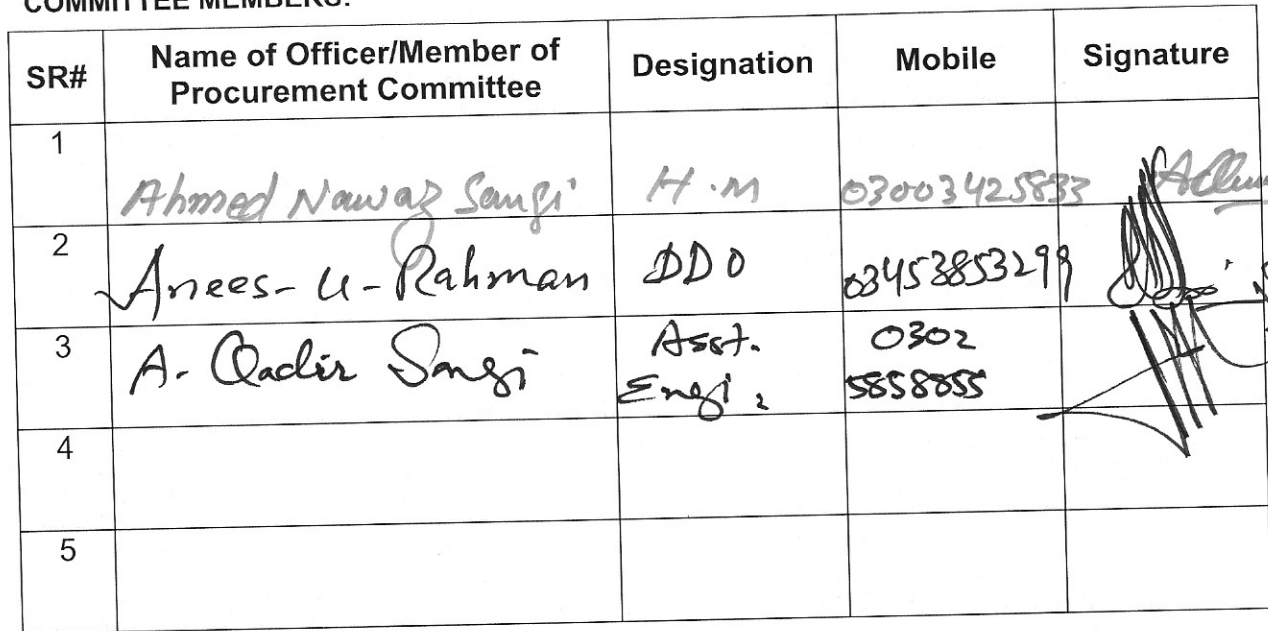 COMMITTEE MEMBERS:
SR# Name of Officer/Member of Procurement Committee Designation Mobile Signature
1 Ahmed Nawaz Sangi H.M 03003425833
2 Anees-u-Rahman DDO 03453853299
3 A. Qadir Sangi Asst. Engi. 0302 5858855
4
5